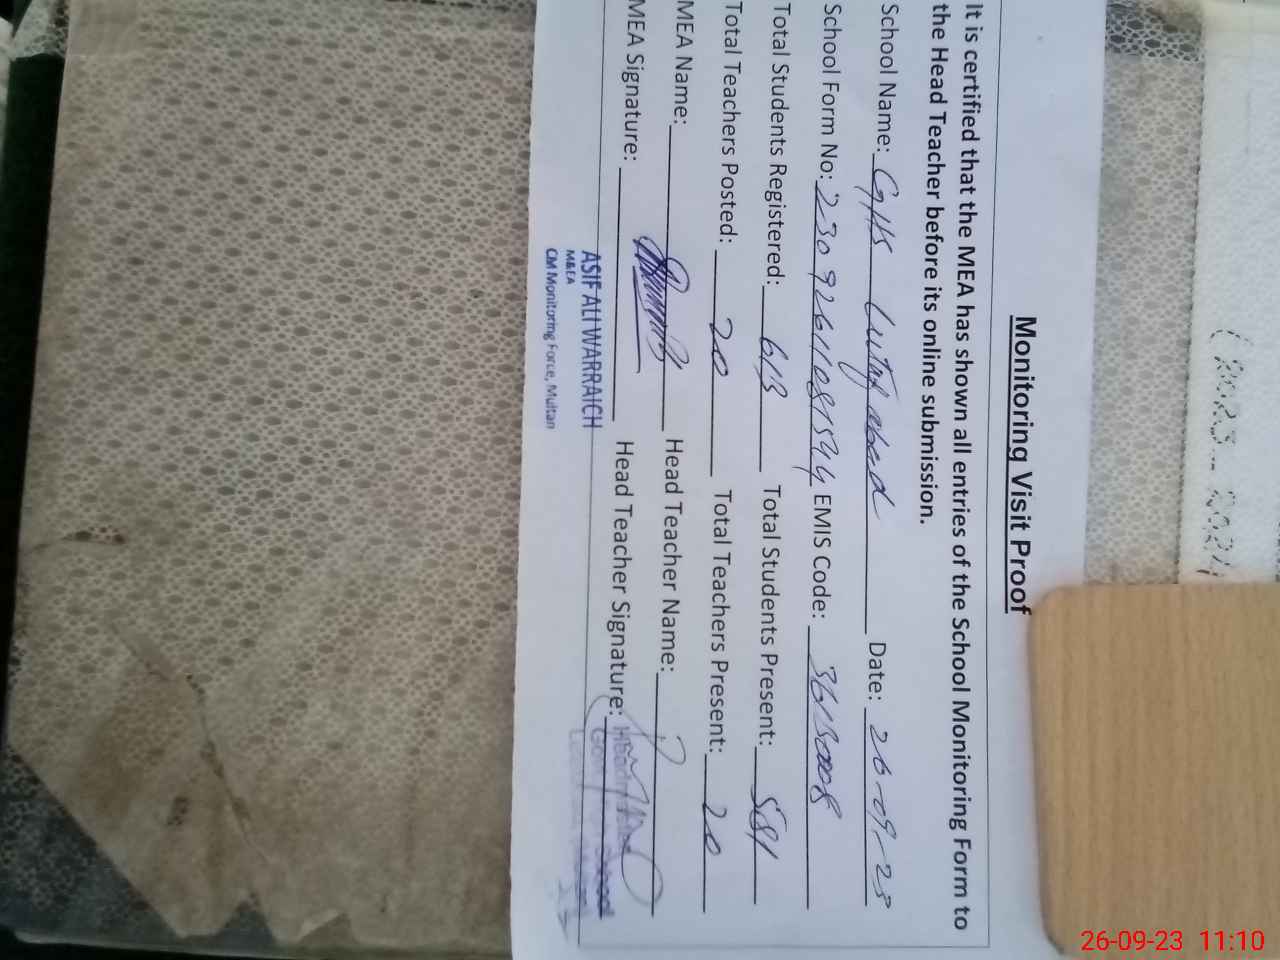 Monitoring Visit Proof
It is certified that the MEA has shown all entries of the School Monitoring Form to
the Head Teacher before its online submission.
School Name: GHS Lutaf abad Date: 26-09-23
School Form No: 23092611081544 EMIS Code: 36130008
Total Students Registered: 613 Total Students Present: 581
Total Teachers Posted: 20 Total Teachers Present: 20
MEA Name: Head Teacher Name:
MEA Signature: Head Teacher Signature:
ASIF ALI WARRAICH
M&EA
CM Monitoring Force, Multan
(2023-2024
26-09-23 11:10